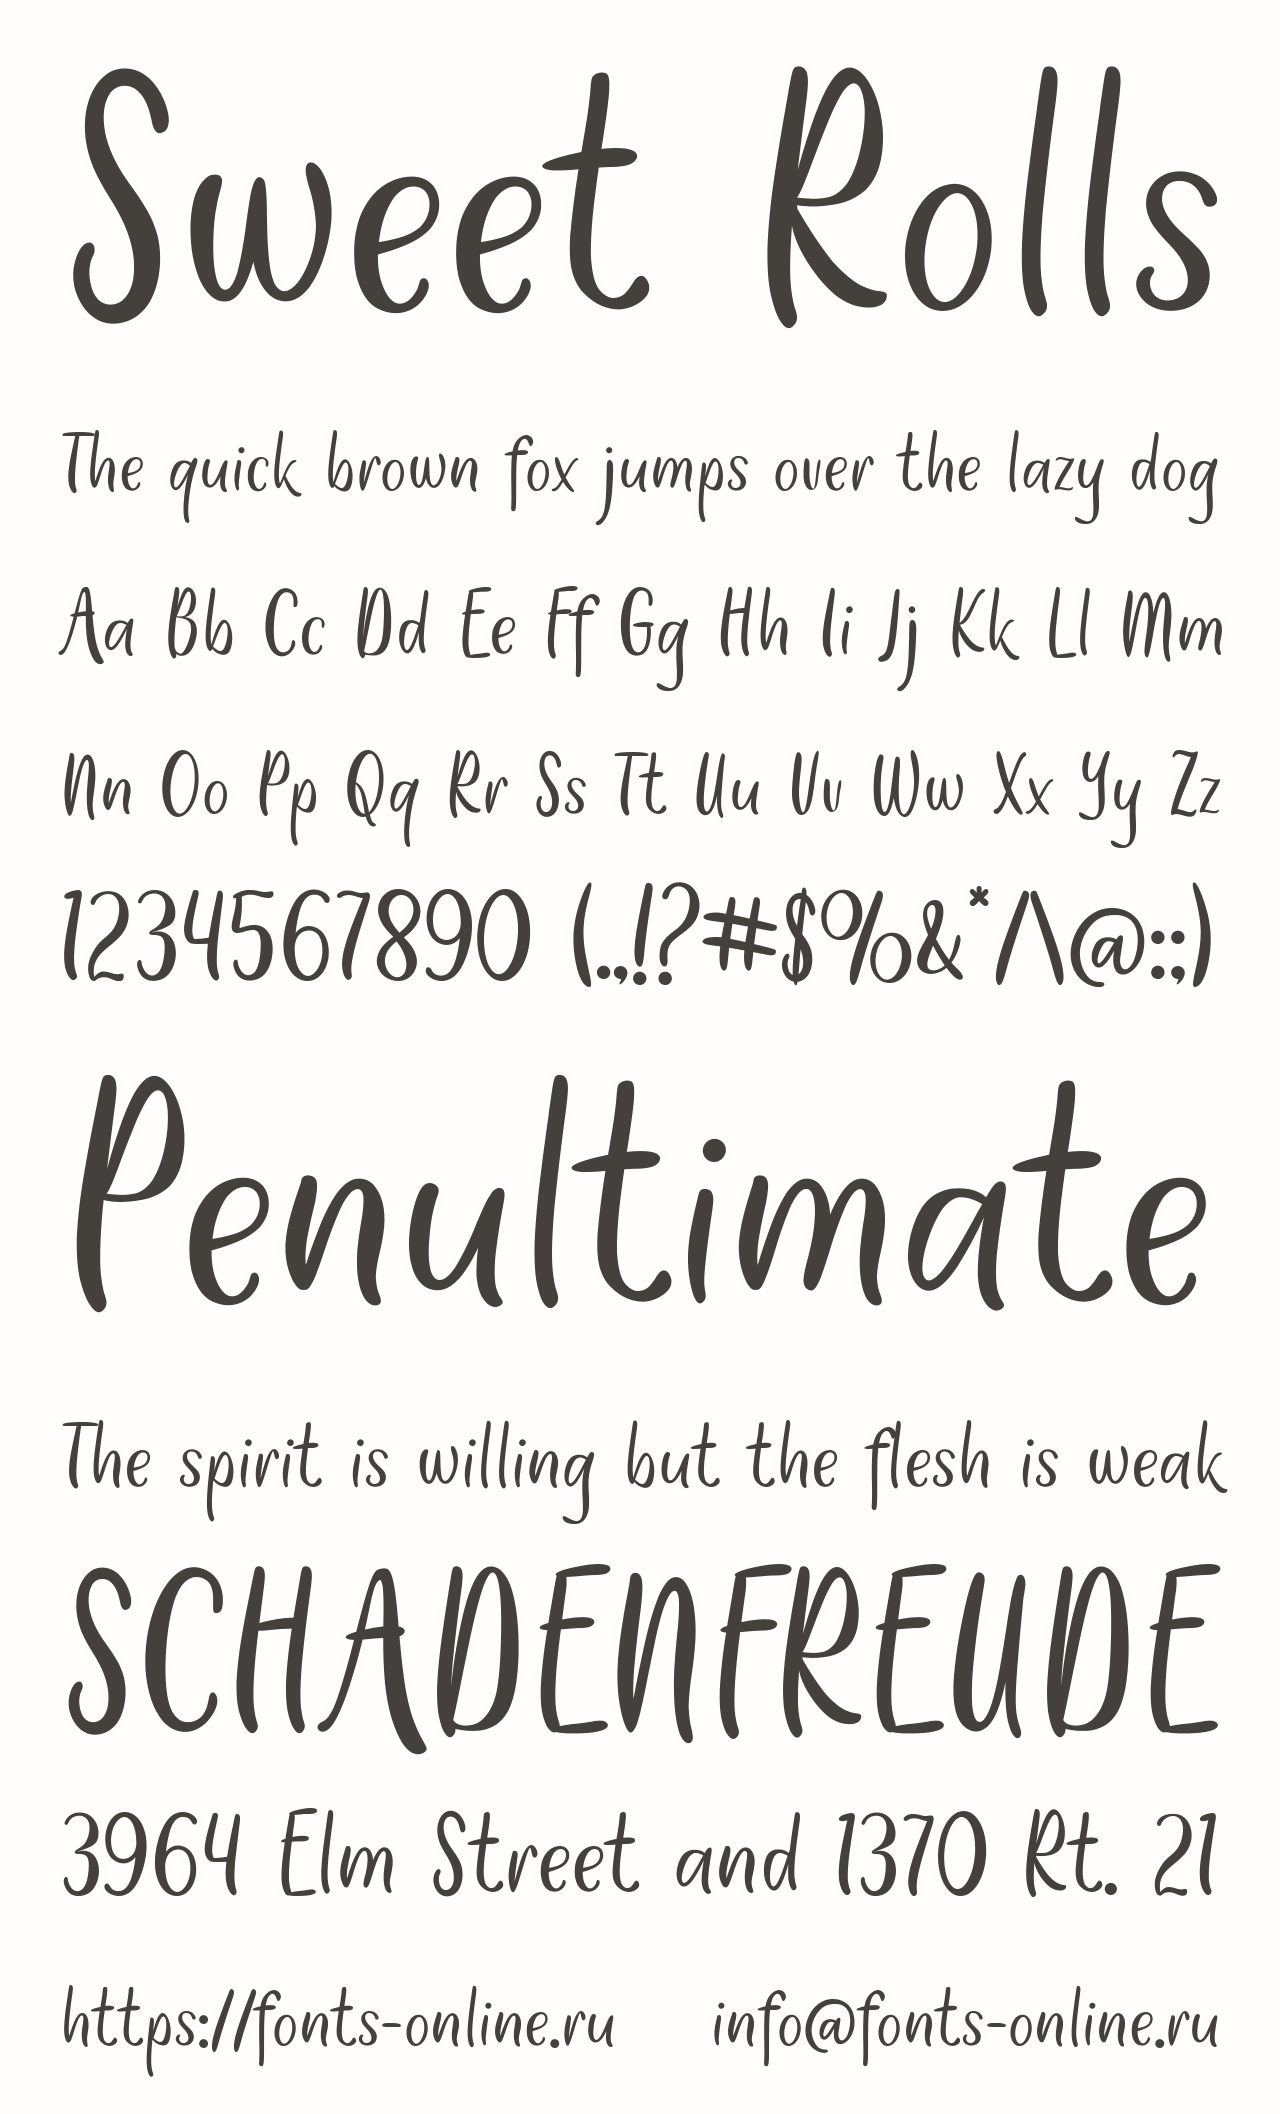 Sweet Rolls
The quick brown fox jumps over the lazy dog
Aa Bb Cc Dd Ee Ff Gg Hh Ii Jj Kk Ll Mm
Nn Oo Pp Qq Rr Ss Tt Uu Vv Ww Xx Yy Zz
1234567890 (.,!?#$%&*/\@:;)
Penultimate
The spirit is willing but the flesh is weak
SCHADENFREUDE
3964 Elm Street and 1370 Rt. 21
https://fonts-online.ru info@fonts-online.ru